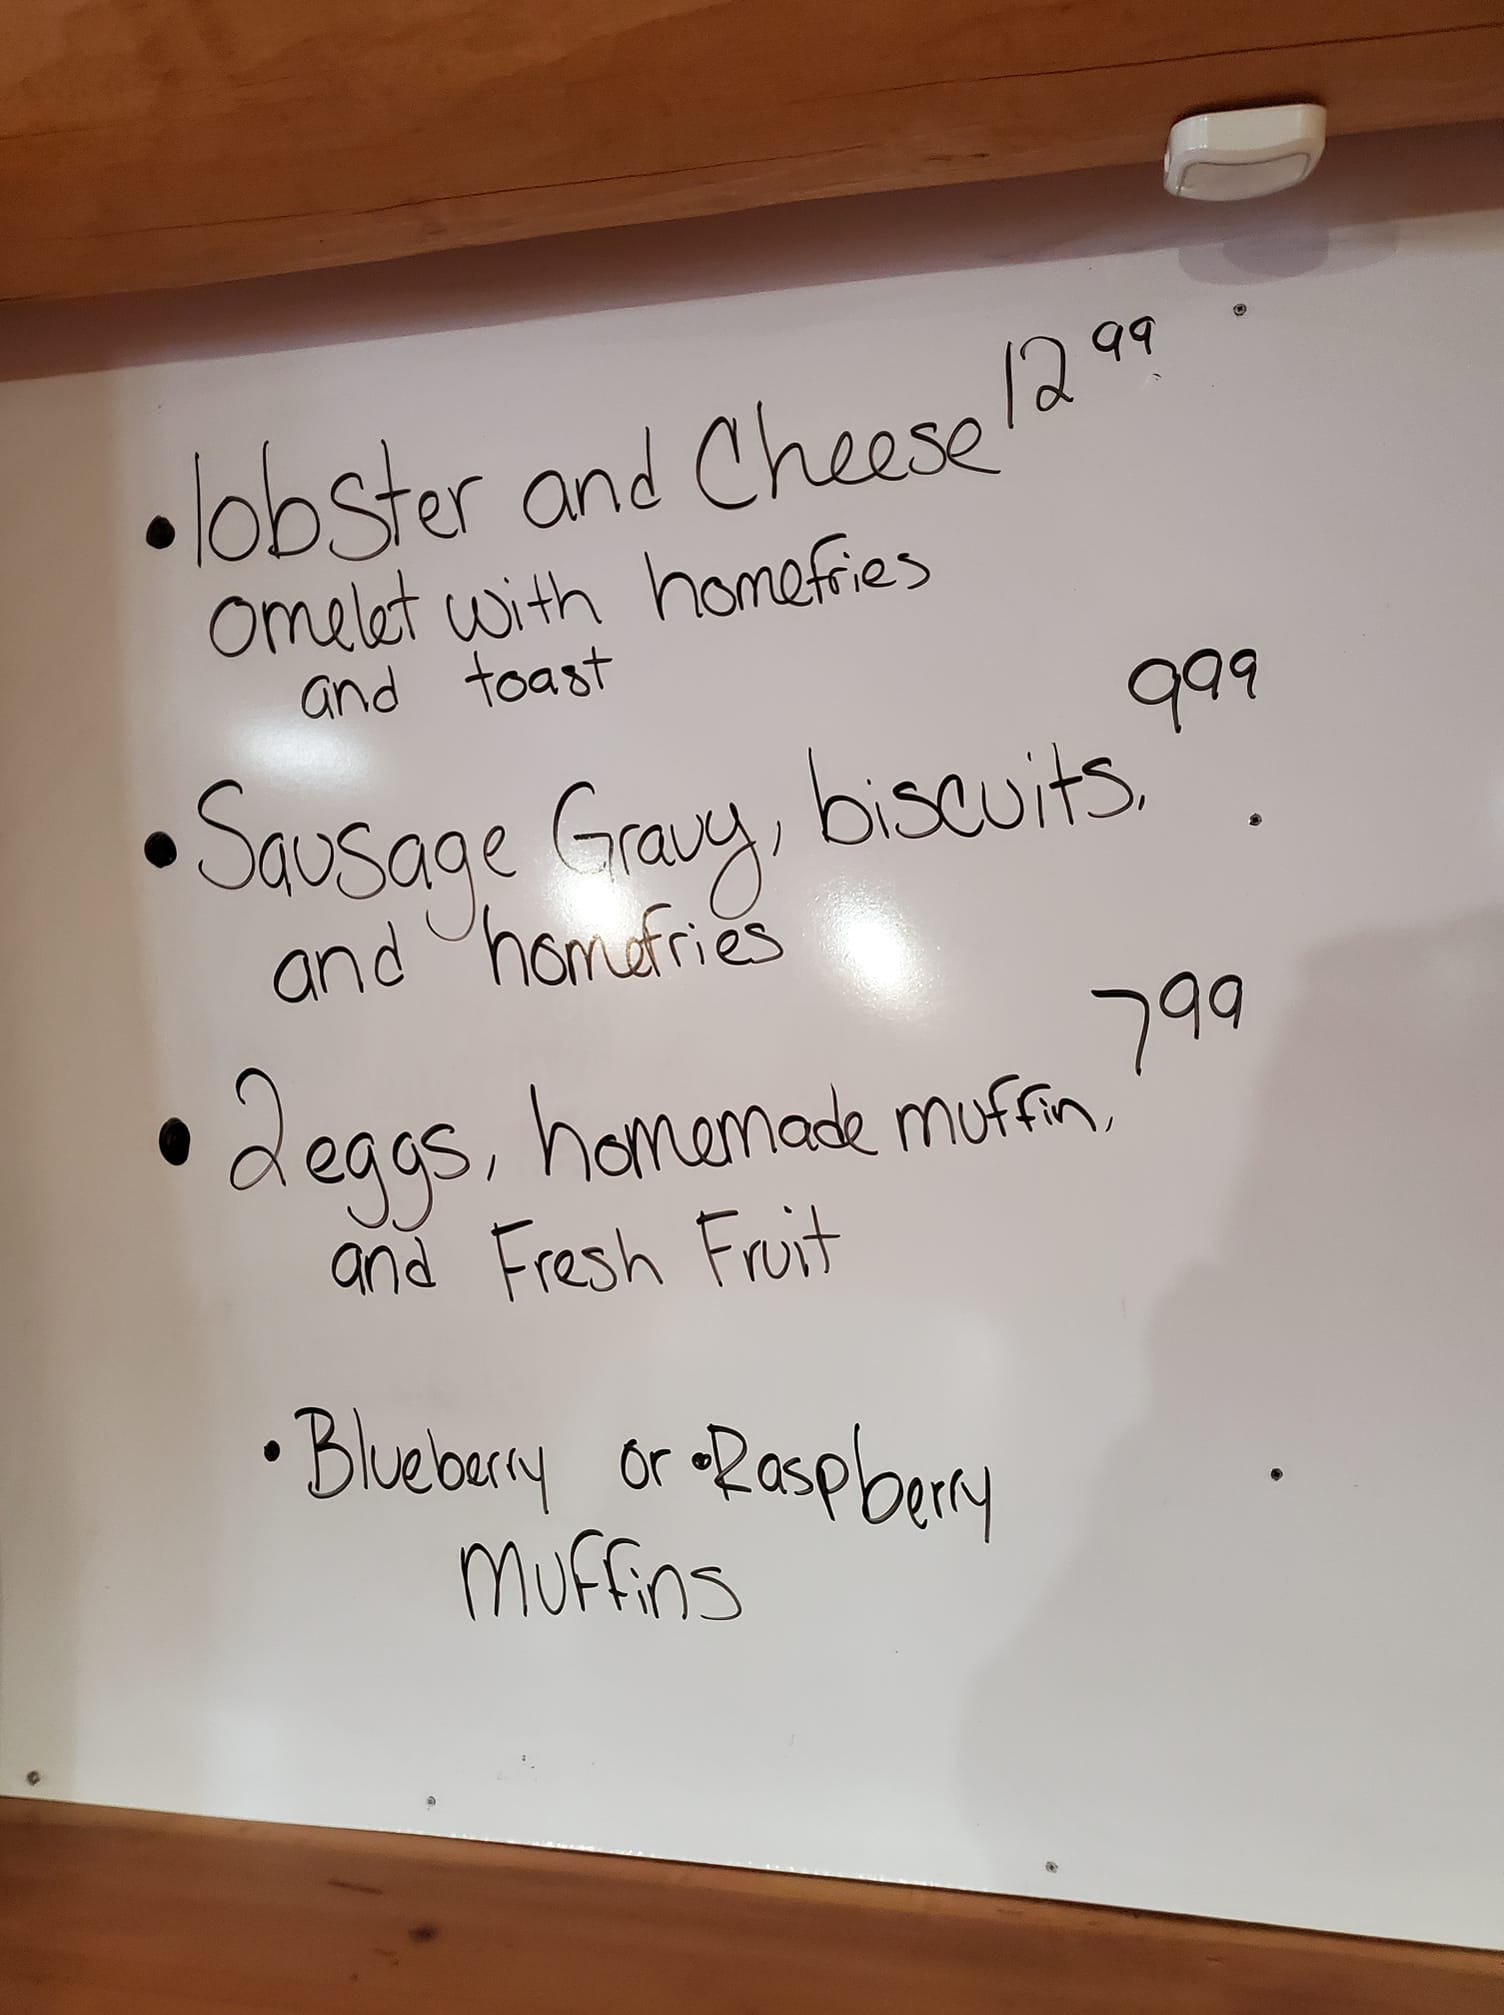 • lobster and Cheese 12 99
omelet with homefries
and toast
• Sausage Gravy, biscuits, 999
and homefries
• 2 eggs, homemade muffin, 799
and Fresh Fruit
• Blueberry or • Raspberry
Muffins